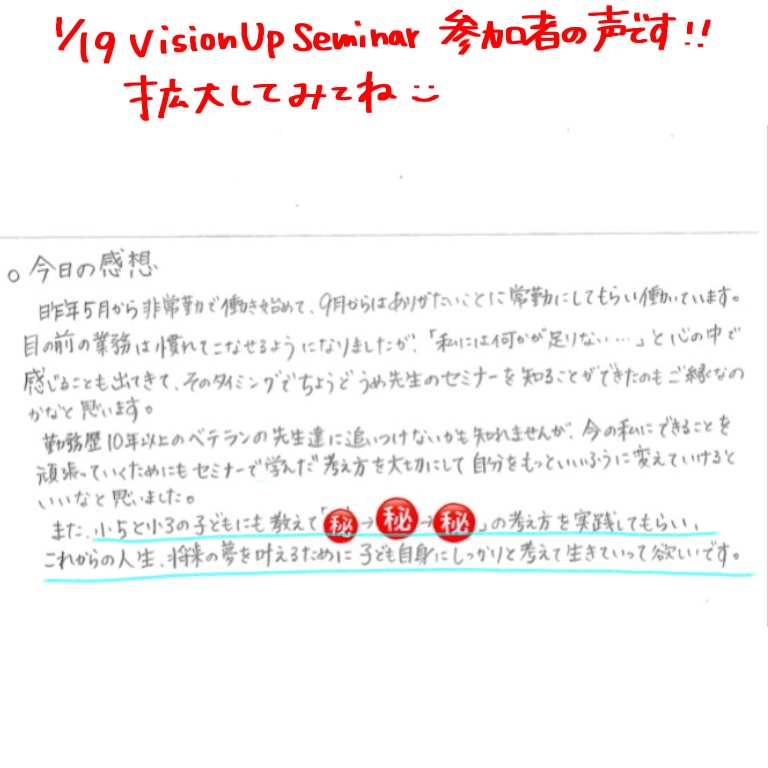 1/19 Vision Up Seminar 参加者の声です!!
拡大してみてね
○ 今日の感想
昨年5月から非常勤で働き始めて、9月からはありがたいことに常勤にしてもらい働いています。
目の前の業務は慣れてこなせるようになりましたが、「私には何かが足りない…」と心の中で
感じることも出てきて、そのタイミングでちょうどうめ先生のセミナーを知ることができたのもご縁なの
かなと思います。
勤務歴10年以上のベテランの先生達に追いつけないかも知れませんが、今の私にできることを
頑張っていくためにもセミナーで学んだ考え方を大切にして自分をもっといいふうに変えていけると
いいなと思いました。
また、小5と小3の子どもにも教えて「秘→秘→秘」の考え方を実践してもらい、
これからの人生、将来の夢を叶えるために子ども自身にしっかりと考えて生きていって欲しいです。